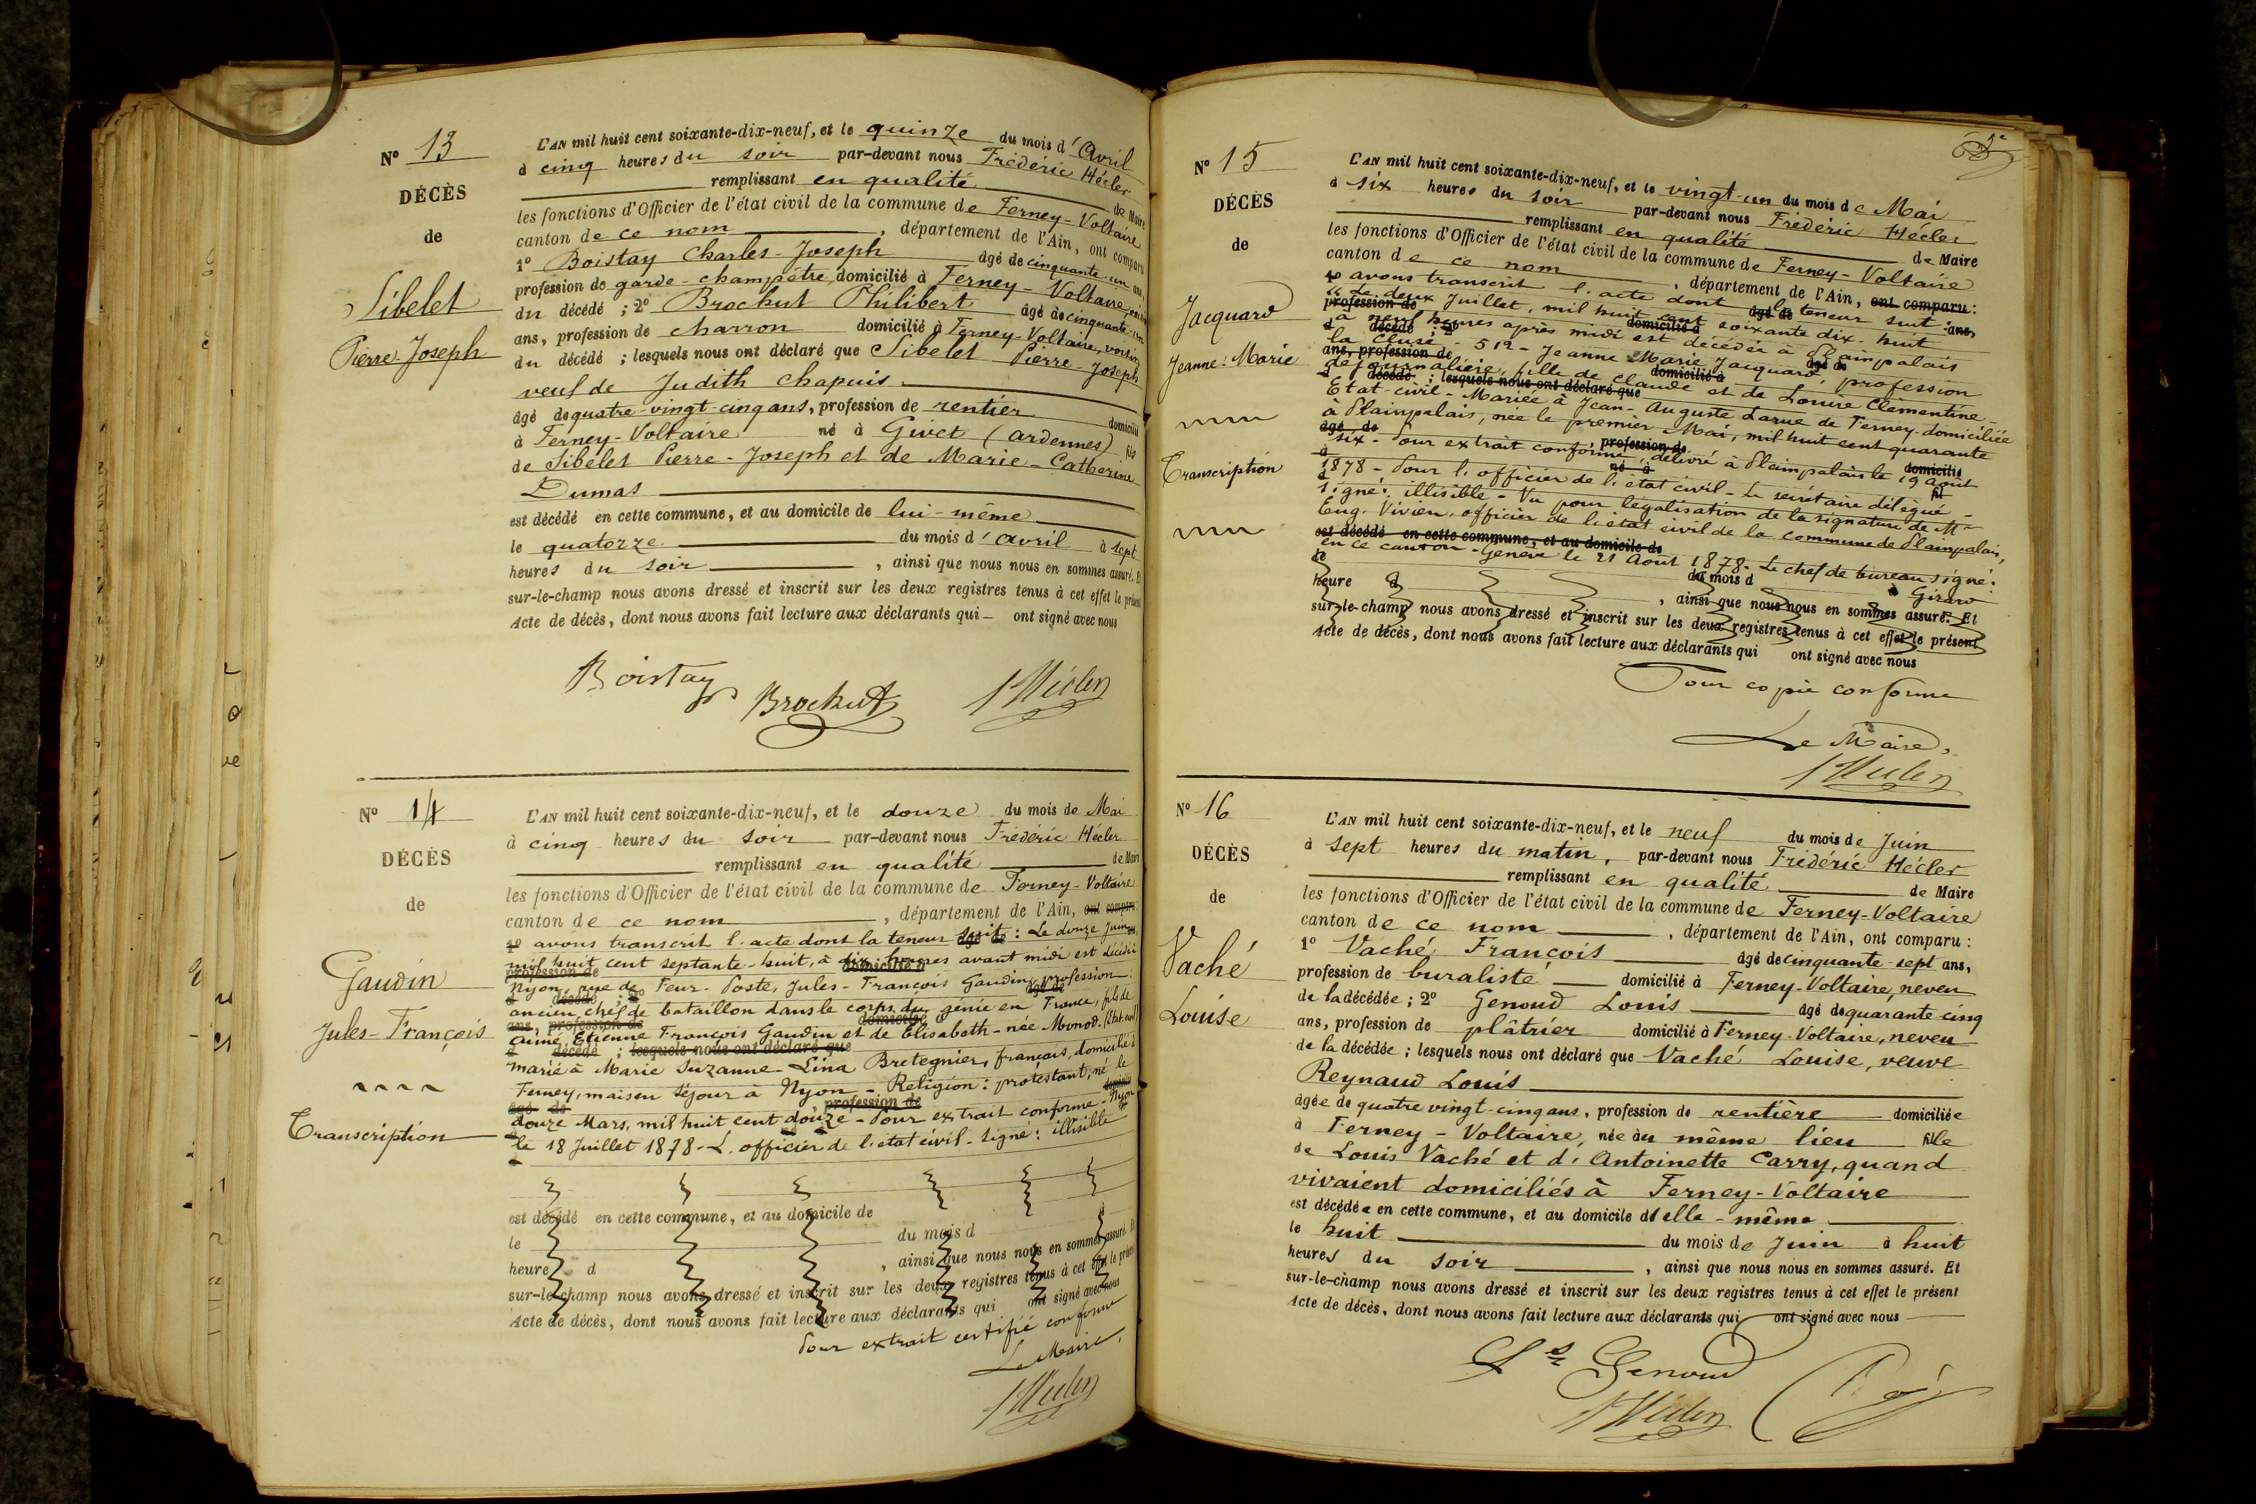 N° 13
DÉCÈS
de
Sibelet
Pierre-Joseph
L'AN mil huit cent soixante-dix-neuf, et le quinze du mois d'Avril
à cinq heures du soir par-devant nous Frédéric Hécler
remplissant en qualité de Maire
les fonctions d'Officier de l'état civil de la commune de Ferney-Voltaire
canton de ce nom, département de l'Ain, ont comparu
1° Boistay Charles-Joseph âgé de cinquante-un ans,
profession de garde-champêtre, domicilié à Ferney-Voltaire,
du décédé ; 2° Brochut Philibert âgé de cinquante-un
ans, profession de charron domicilié à Ferney-Voltaire, voisin
du décédé ; lesquels nous ont déclaré que Sibelet Pierre-Joseph
veuf de Judith Chapuis
âgé de quatre-vingt-cinq ans, profession de rentier domicilié
à Ferney-Voltaire né à Givet (Ardennes) fils
de Sibelet Pierre-Joseph et de Marie-Catherine
Dumas
est décédé en cette commune, et au domicile de lui-même
le quatorze du mois d'Avril à sept
heures du soir, ainsi que nous nous en sommes assuré. Et
sur-le-champ nous avons dressé et inscrit sur les deux registres tenus à cet effet le présent
Acte de décès, dont nous avons fait lecture aux déclarants qui ont signé avec nous
Boistay Brochut Hécler
N° 14
DÉCÈS
de
Gaudin
Jules-François
Transcription
L'AN mil huit cent soixante-dix-neuf, et le douze du mois de Mai
à cinq heures du soir par-devant nous Frédéric Hécler
remplissant en qualité de Maire
les fonctions d'Officier de l'état civil de la commune de Ferney-Voltaire
canton de ce nom, département de l'Ain, ont comparu
1° avons transcrit l'acte dont la teneur suit : Le douze Juin
mil huit cent septante-huit, à dix heures avant midi est décédé à
Nyon, rue de Feur-Poste, Jules-François Gaudin, profession:
ancien chef de bataillon dans le corps du génie en France, fils de
Etienne François Gaudin et de Elisabeth née Monod. (Etat civil)
marié à Marie Suzanne-Lina Bretegnier, français, domicilié à
Ferney, maison séjour à Nyon - Religion : protestant, né le
douze Mars, mil huit cent douze - Pour extrait conforme - Nyon
le 18 Juillet 1878 - L'officier de l'état civil - signé : illisible
est décédé en cette commune, et au domicile de
le du mois d à
heure d, ainsi que nous nous en sommes assuré. Et
sur-le-champ nous avons dressé et inscrit sur les deux registres tenus à cet effet le présent
Acte de décès, dont nous avons fait lecture aux déclarants qui ont signé avec nous
Pour extrait certifié conforme
Le Maire,
Hécler
N° 15
DÉCÈS
de
Jacquard
Jeanne-Marie
Transcription
L'AN mil huit cent soixante-dix-neuf, et le vingt-un du mois de Mai
à six heures du soir par-devant nous Frédéric Hécler
remplissant en qualité de Maire
les fonctions d'Officier de l'état civil de la commune de Ferney-Voltaire
canton de ce nom, département de l'Ain, ont comparu :
1° avons transcrit l'acte dont la teneur suit :
"Le deux Juillet, mil huit cent soixante dix-huit
à neuf heures après midi est décédée à Plainpalais
la Cluse - 512 - Jeanne Marie Jacquard, profession
de journalière, fille de Claude et de Louise Clémentine -
Etat-civil - Mariée à Jean-Auguste Larue de Ferney - domiciliée
à Plainpalais, née le premier Mai, mil huit cent quarante
six - Pour extrait conforme, délivré à Plainpalais le 19 août
1878 - Pour l'officier de l'état civil - Le secrétaire délégué -
signé : illisible - Vu pour légalisation de la signature de Mr
Eug. Vivien, officier de l'état civil de la commune de Plainpalais,
est décédé en cette commune, et au domicile de
en ce canton - Genève le 21 Août 1878 - Le chef de bureau signé :
Girard
heure d du mois d
, ainsi que nous nous en sommes assuré. Et
sur-le-champ nous avons dressé et inscrit sur les deux registres tenus à cet effet le présent
Acte de décès, dont nous avons fait lecture aux déclarants qui ont signé avec nous
Pour copie conforme
Le Maire,
Hécler
N° 16
DÉCÈS
de
Vaché
Louise
L'AN mil huit cent soixante-dix-neuf, et le neuf du mois de Juin
à sept heures du matin, par-devant nous Frédéric Hécler
remplissant en qualité de Maire
les fonctions d'Officier de l'état civil de la commune de Ferney-Voltaire
canton de ce nom, département de l'Ain, ont comparu :
1° Vaché François âgé de cinquante-sept ans,
profession de buraliste domicilié à Ferney-Voltaire, neveu
de la décédée ; 2° Genoud Louis âgé de quarante cinq
ans, profession de plâtrier domicilié à Ferney-Voltaire, neveu
de la décédée ; lesquels nous ont déclaré que Vaché Louise, veuve
Reynaud Louis
âgée de quatre vingt-cinq ans, profession de rentière domiciliée
à Ferney-Voltaire, née au même lieu fille
de Louis Vaché et d'Antoinette Carry, quand
vivaient domiciliés à Ferney-Voltaire
est décédée en cette commune, et au domicile d'elle-même
le huit du mois de Juin à huit
heures du soir, ainsi que nous nous en sommes assuré. Et
sur-le-champ nous avons dressé et inscrit sur les deux registres tenus à cet effet le présent
Acte de décès, dont nous avons fait lecture aux déclarants qui ont signé avec nous
Ls Genoud
Hécler